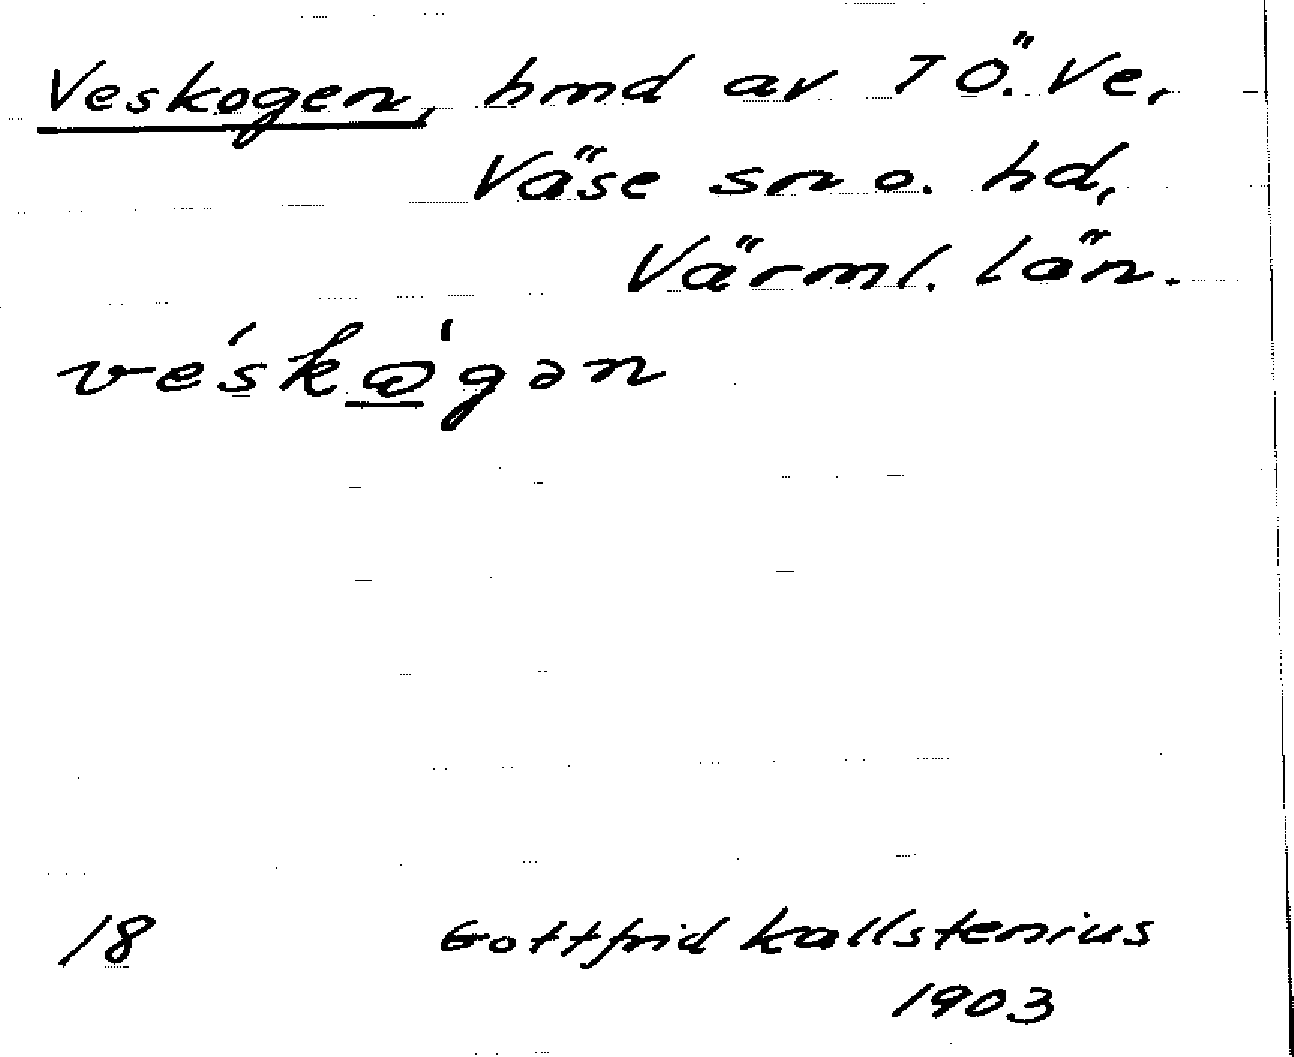 Veskogen, hmd av 7 Ö. Ve,
Väse sn o. hd,
Värml. län.
ve´skω̲´gən
18 Gottfrid Kallstenius
1903